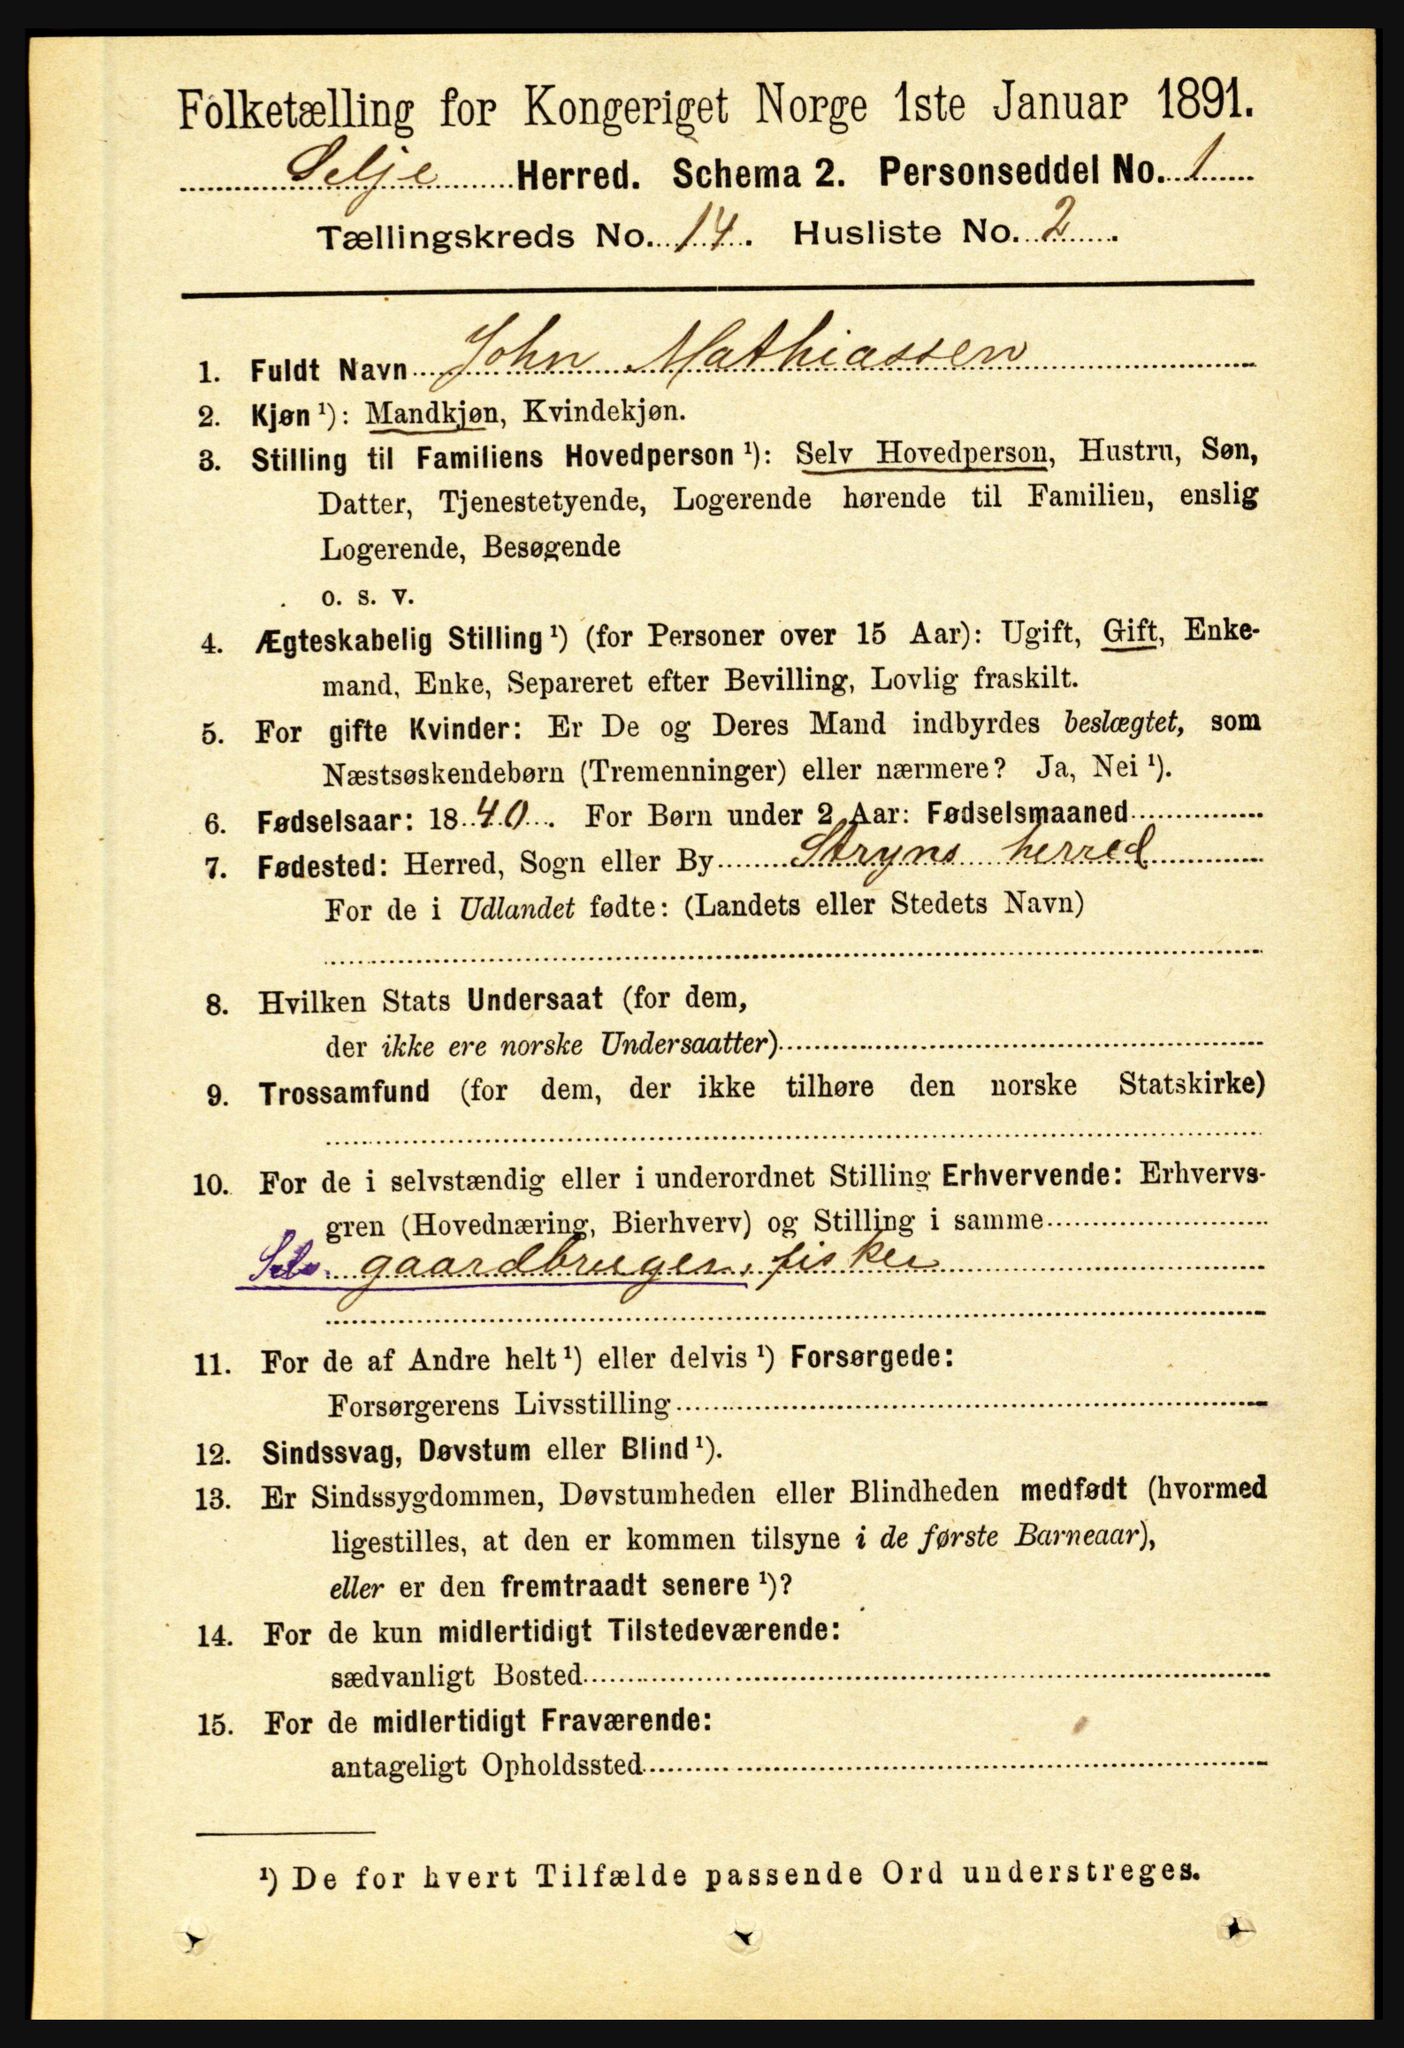 Folketælling for Kongeriget Norge 1ste Januar 1891.
Selje Herred. Schema 2. Personseddel No. 1
Tællingskreds No. 14. Husliste No. 2.
1. Fuldt Navn John Mathiassen
2. Kjøn ¹): Mandkjøn, Kvindekjøn.
3. Stilling til Familiens Hovedperson ¹): Selv Hovedperson, Hustru, Søn,
Datter, Tjenestetyende, Logerende hørende til Familien, enslig
Logerende, Besøgende
o. s. v.
4. Ægteskabelig Stilling ¹) (for Personer over 15 Aar): Ugift, Gift, Enke-
mand, Enke, Separeret efter Bevilling, Lovlig fraskilt.
5. For gifte Kvinder: Er De og Deres Mand indbyrdes beslægtet, som
Næstsøskendebørn (Tremenninger) eller nærmere? Ja, Nei ¹).
6. Fødselsaar: 1840. For Børn under 2 Aar: Fødselsmaaned
7. Fødested: Herred, Sogn eller By Stryns herred
For de i Udlandet fødte: (Landets eller Stedets Navn)
8. Hvilken Stats Undersaat (for dem,
der ikke ere norske Undersaatter)
9. Trossamfund (for dem, der ikke tilhøre den norske Statskirke)
10. For de i selvstændig eller i underordnet Stilling Erhvervende: Erhvervs-
gren (Hovednæring, Bierhverv) og Stilling i samme
Selv. gaardbruger, fisker
11. For de af Andre helt ¹) eller delvis ¹) Forsørgede:
Forsørgerens Livsstilling
12. Sindssvag, Døvstum eller Blind ¹).
13. Er Sindssygdommen, Døvstumheden eller Blindheden medfødt (hvormed
ligestilles, at den er kommen tilsyne i de første Barneaar),
eller er den fremtraadt senere ¹)?
14. For de kun midlertidigt Tilstedeværende:
sædvanligt Bosted
15. For de midlertidigt Fraværende:
antageligt Opholdssted
¹) De for hvert Tilfælde passende Ord understreges.